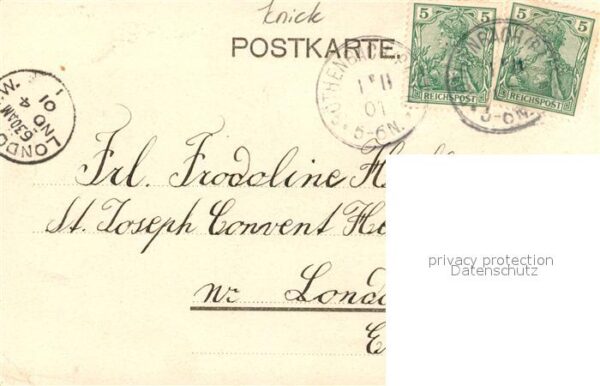 knick
POSTKARTE.
5 5
REICHSPOST REICHSPOST
5-6N. 5-6N.
LONDO
6 30 AM
NO 4
01
Frl. Frodoline
St. Joseph Convent
nr Londo
E
privacy protection
Datenschutz